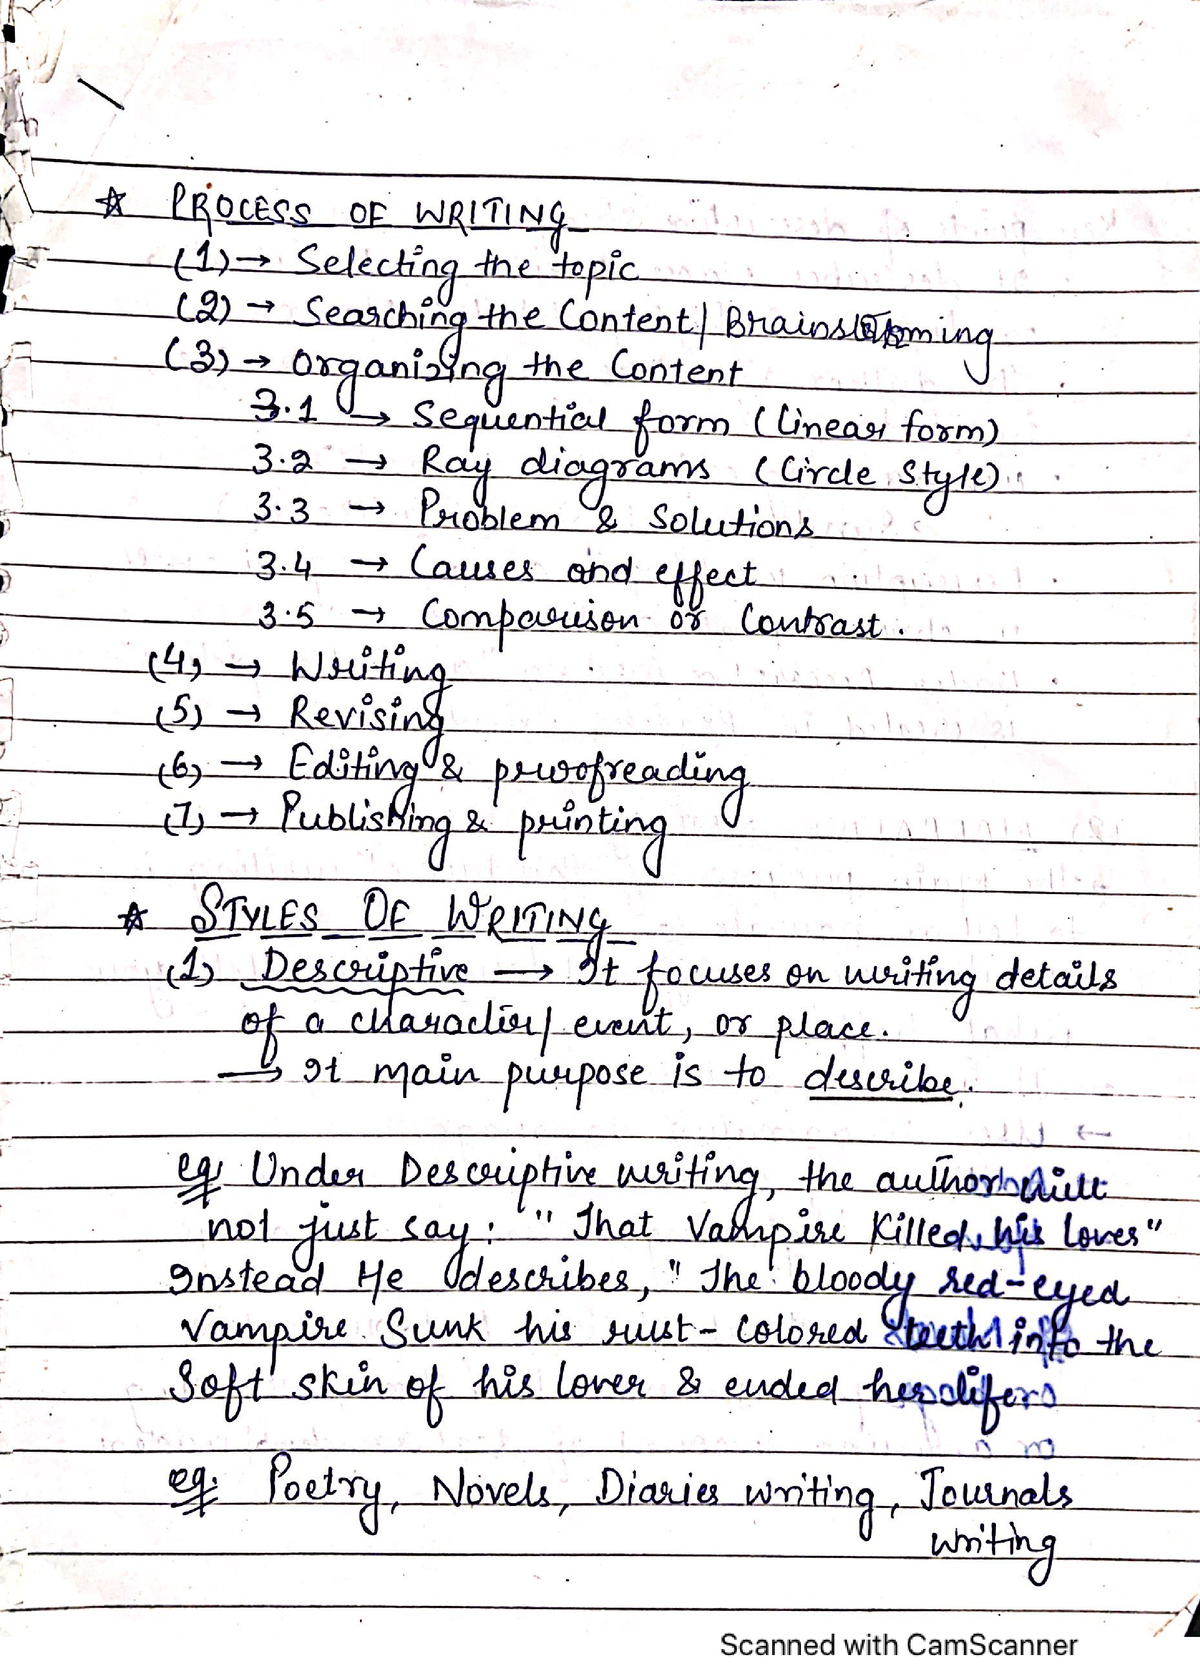 ☆ PROCESS OF WRITING
(1) → Selecting the topic
(2) → Searching the Content / Brainstorming
(3) → Organizing the Content
3.1 → Sequential form (Linear form)
3.2 → Ray diagrams (Circle Style)
3.3 → Problem & Solutions
3.4 → Causes and effect
3.5 → Comparison or Contrast.
(4) → Writing
(5) → Revising
(6) → Editing & proofreading
(7) → Publishing & printing
☆ STYLES OF WRITING
(1) Descriptive → It focuses on writing details
of a character/ event, or place.
→ It main purpose is to describe.
eg. Under Descriptive writing, the author will
not just say: "That Vampire Killed his lover"
Instead He describes, "The bloody red-eyed
Vampire Sunk his rust-colored teeth into the
Soft skin of his lover & ended her life
eg. Poetry, Novels, Diaries writing, Journals
writing
Scanned with CamScanner